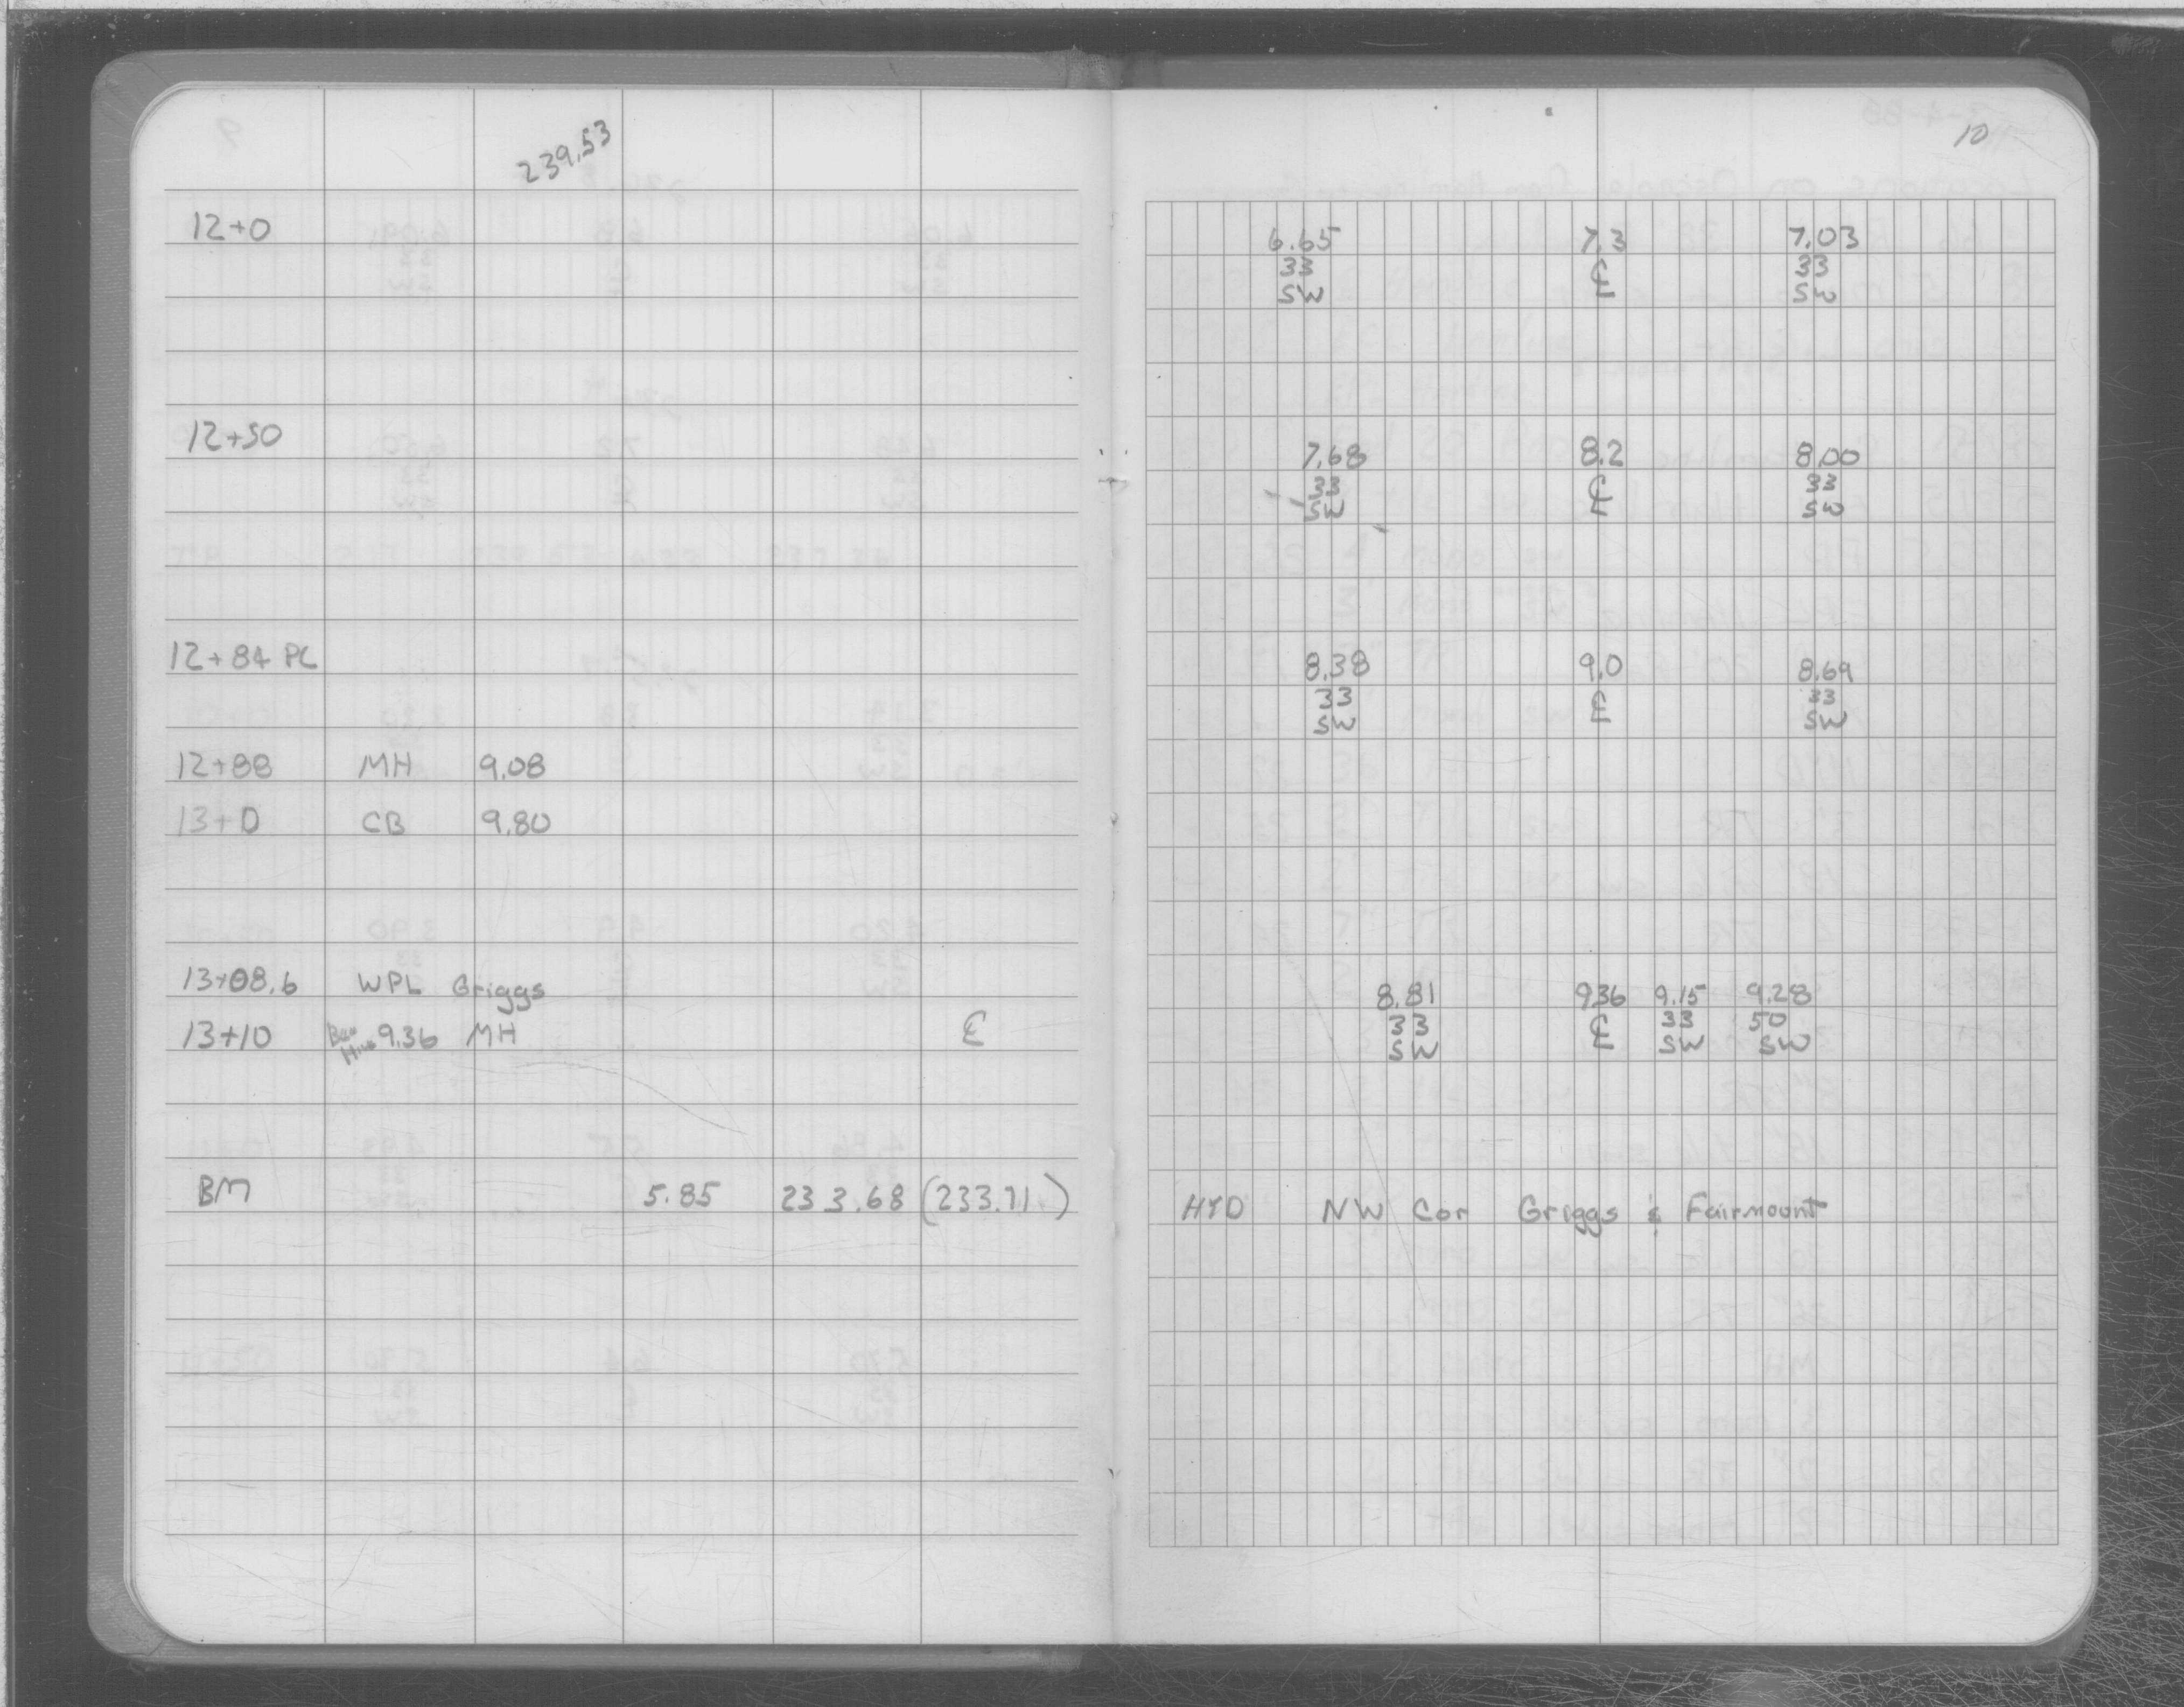 239.53
12+0
12+50
12+84 PC
12+88 MH 9.08
13+0 CB 9.80
13+08.6 WPL Griggs
13+10 9.36 MH ℄
BM 5.85 233.68 (233.71)
10
6.65 7.3 7.03
33 ℄ 33
SW SW
7.68 8.2 8.00
33 ℄ 33
SW SW
8.38 9.0 8.69
33 ℄ 33
SW SW
8.81 936 9.15 9.28
33 ℄ 33 50
SW SW SW
HYD NW Cor Griggs & Fairmount